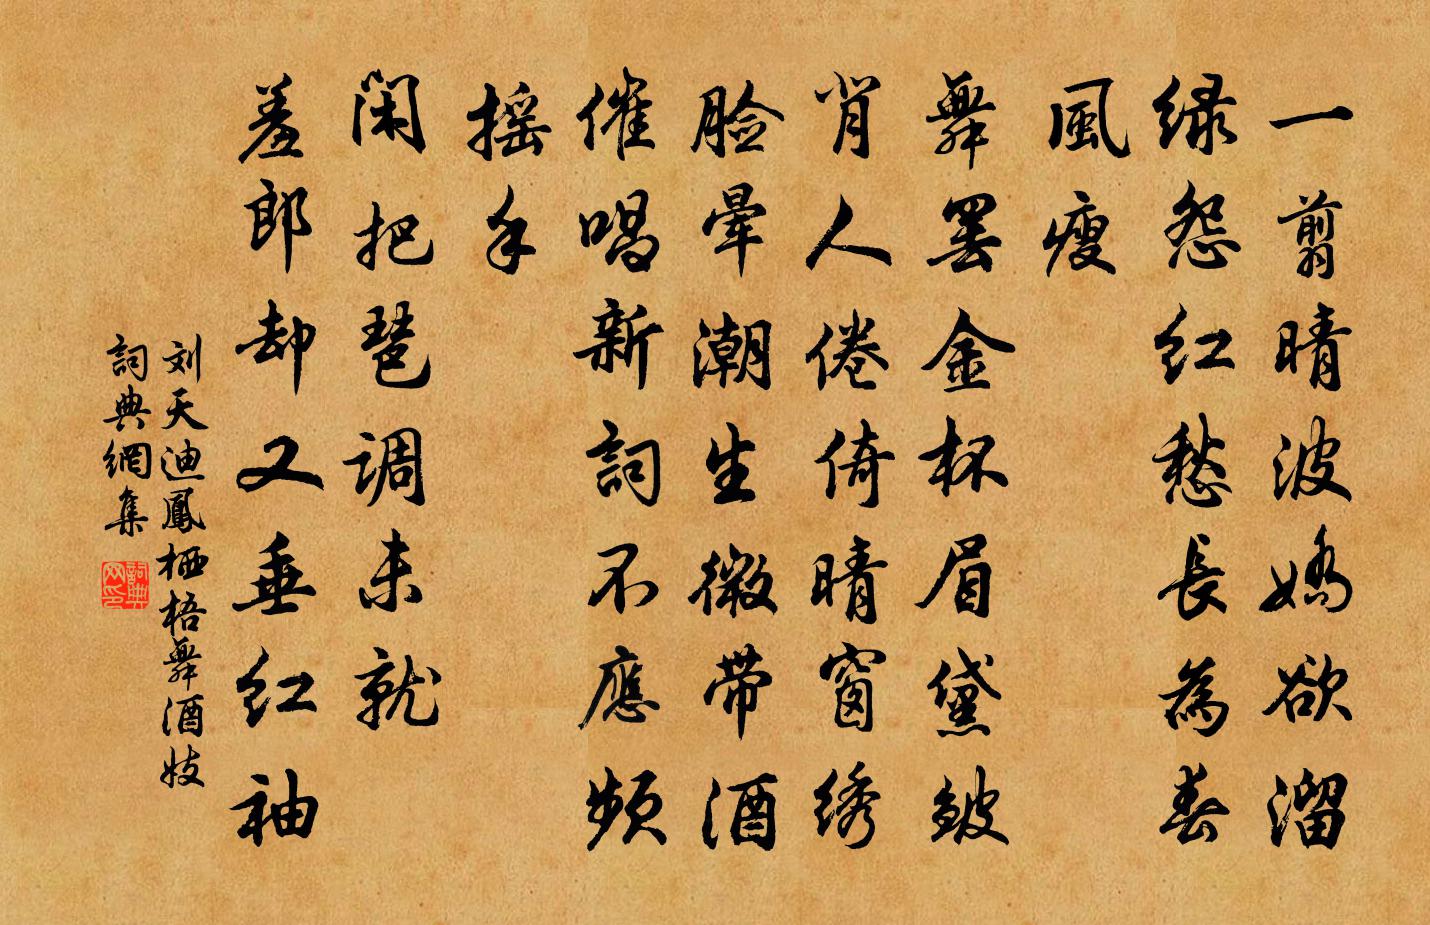 一翦晴波嬌欲溜
绿怨红愁長為春
風瘦
舞罢金杯眉黛皱
背人倦倚晴窗绣
脸晕潮生微带酒
催唱新詞不應頻
摇手
閑把琶调未就
羞郎却又垂红袖
刘天迪鳳栖梧舞酒妓
詞典網集